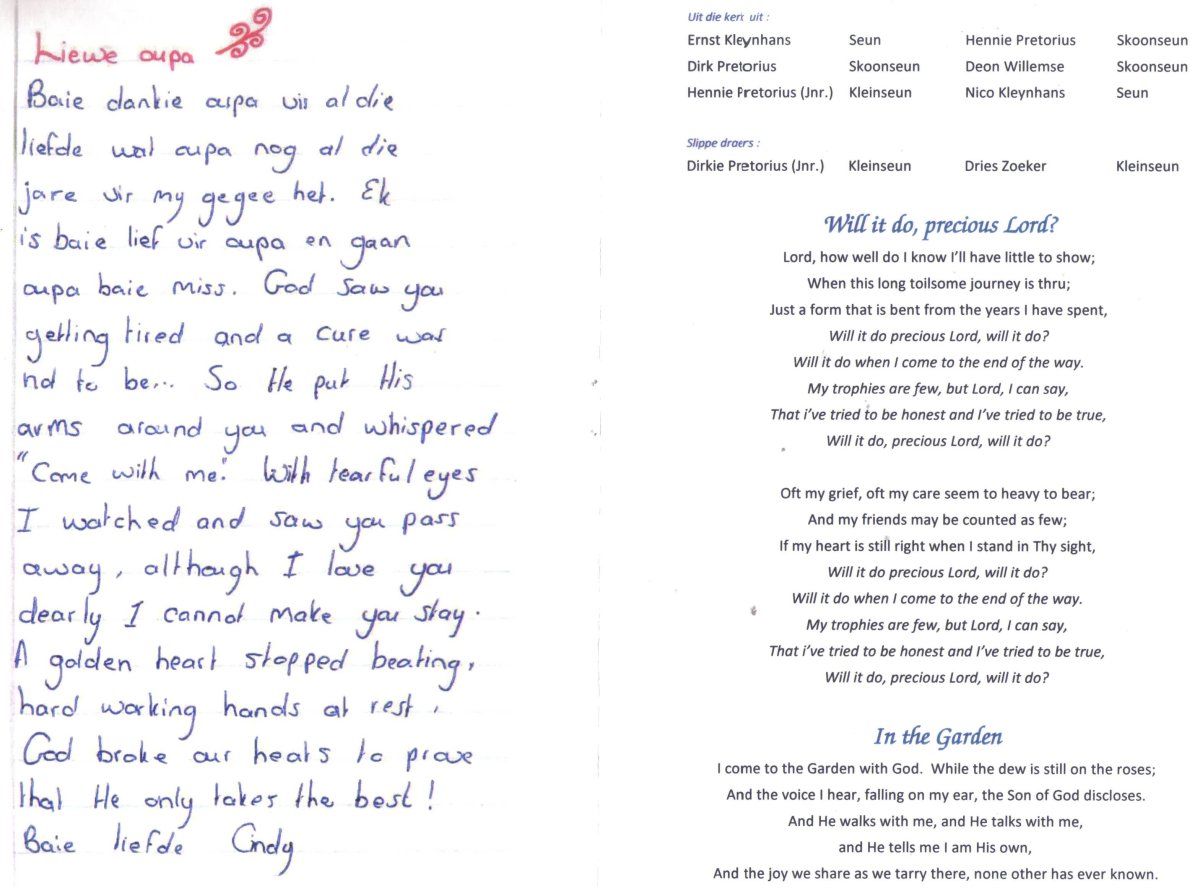 Liewe oupa
Baie dankie oupa vir al die
liefde wat oupa nog al die
jare vir my gegee het. Ek
is baie lief vir oupa en gaan
oupa baie miss. God saw you
getting tired and a cure was
not to be... So He put His
arms around you and whispered
"Come with me". With tearful eyes
I watched and saw you pass
away, although I love you
dearly I cannot make you stay.
A golden heart stopped beating,
hard working hands at rest,
God broke our heats to prove
that He only takes the best!
Baie liefde Cindy
Uit die kerk uit :
Ernst Kleynhans Seun Hennie Pretorius Skoonseun
Dirk Pretorius Skoonseun Deon Willemse Skoonseun
Hennie Pretorius (Jnr.) Kleinseun Nico Kleynhans Seun
Slippe draers :
Dirkie Pretorius (Jnr.) Kleinseun Dries Zoeker Kleinseun
Will it do, precious Lord?
Lord, how well do I know I'll have little to show;
When this long toilsome journey is thru;
Just a form that is bent from the years I have spent,
Will it do precious Lord, will it do?
Will it do when I come to the end of the way.
My trophies are few, but Lord, I can say,
That i've tried to be honest and I've tried to be true,
Will it do, precious Lord, will it do?
Oft my grief, oft my care seem to heavy to bear;
And my friends may be counted as few;
If my heart is still right when I stand in Thy sight,
Will it do precious Lord, will it do?
Will it do when I come to the end of the way.
My trophies are few, but Lord, I can say,
That i've tried to be honest and I've tried to be true,
Will it do, precious Lord, will it do?
In the Garden
I come to the Garden with God. While the dew is still on the roses;
And the voice I hear, falling on my ear, the Son of God discloses.
And He walks with me, and He talks with me,
and He tells me I am His own,
And the joy we share as we tarry there, none other has ever known.